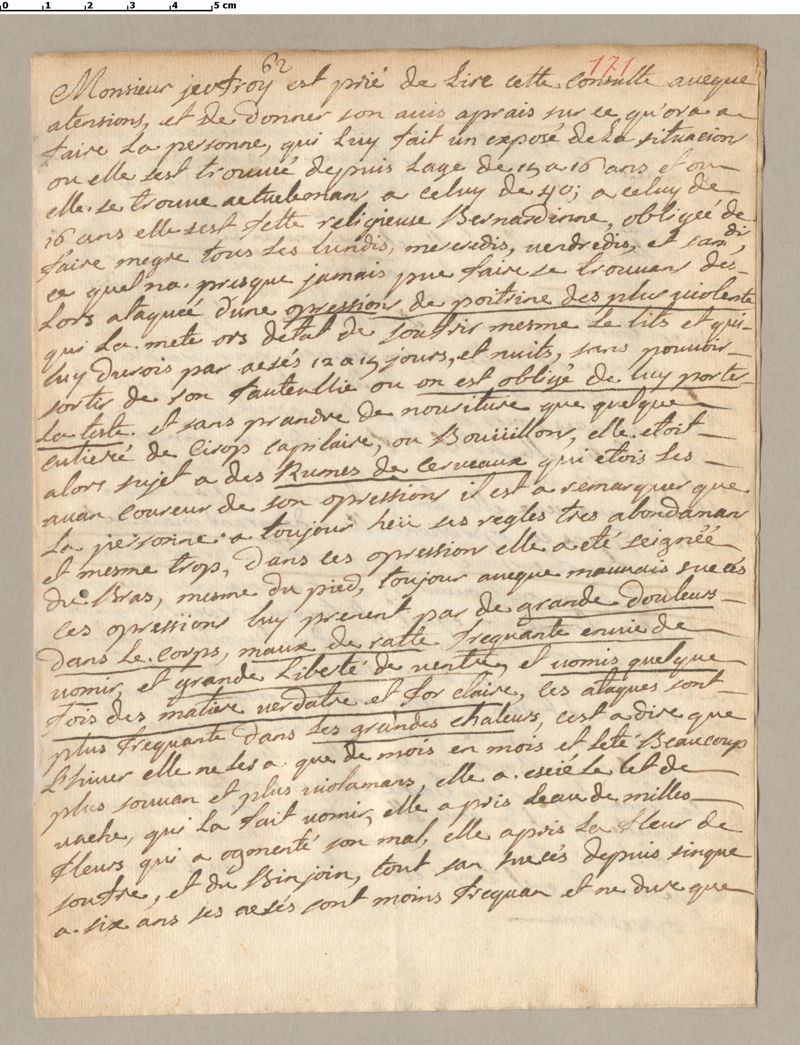 0 1 2 3 4 5 cm
62
171
Monsieur jeofroy est prié de Lire cette Consulte aveque
atensions, et de donner son auis aprais sur ce qu'ora a
faire La personne, qui Luy fait un exposé de La situacion
ou elle sest trouueé depuis Lage de 15 a 16 ans et ou
elle se trouue actuelemans a celuy de 40; a celuy de
16 ans elle sest fette religieuse Bernardinne, obligeé de
faire megre tous les Lundis, mercredis, vendredis, et samdi,
ce quel na presque jamais pue faire se trouuans des
Lors ataqueé d'une opression de poitrine des plus violente
qui La mete ors détat de soufrir mesme Le Lits et qui
Luy durois par acsés 12 a 15 jours, et nuits, sans pouuoir
sortir de son fauteullie ou on est obligé de Luy porter
La teste. et sans prandre de nouriture que quelque
Cutieré de Cirop Capilaire, ou Bouuillon, elle etoit
alors sujet a des Rumes de Cerveaux qui etois Les
auan Coureur de son opression il est a remarquer que
La personne a toujour heü ses regles tres abondaman
et mesme trop, Dans ces opression elle a eté seigneé
du Bras, mesme du pied, toujour aueque mauuais sucés
Ces opressions Luy prenent par de grande douleurs
dans Le Corps, maux de ratte frequante enuie de
vomir, et grande Liberté de ventre, et vomis quelque
fois des matiere verdatre et for claire, Ces ataques sont
plus frequante Dans Les grandes chaleurs, cest a dire que
L'hiuer elle ne Les a que de mois en mois et Leté Beaucoup
plus souuan et plus violamans, elle a eseié Le Let de
vache, qui La fait vomir, elle a pris Leau de milles
fleurs qui a ogmenté son mal, elle apris La fleur de
soufre, et du Binjoin, tout san sucés depuis sinque
a six ans ses acsés sont moins frequan et ne dure que